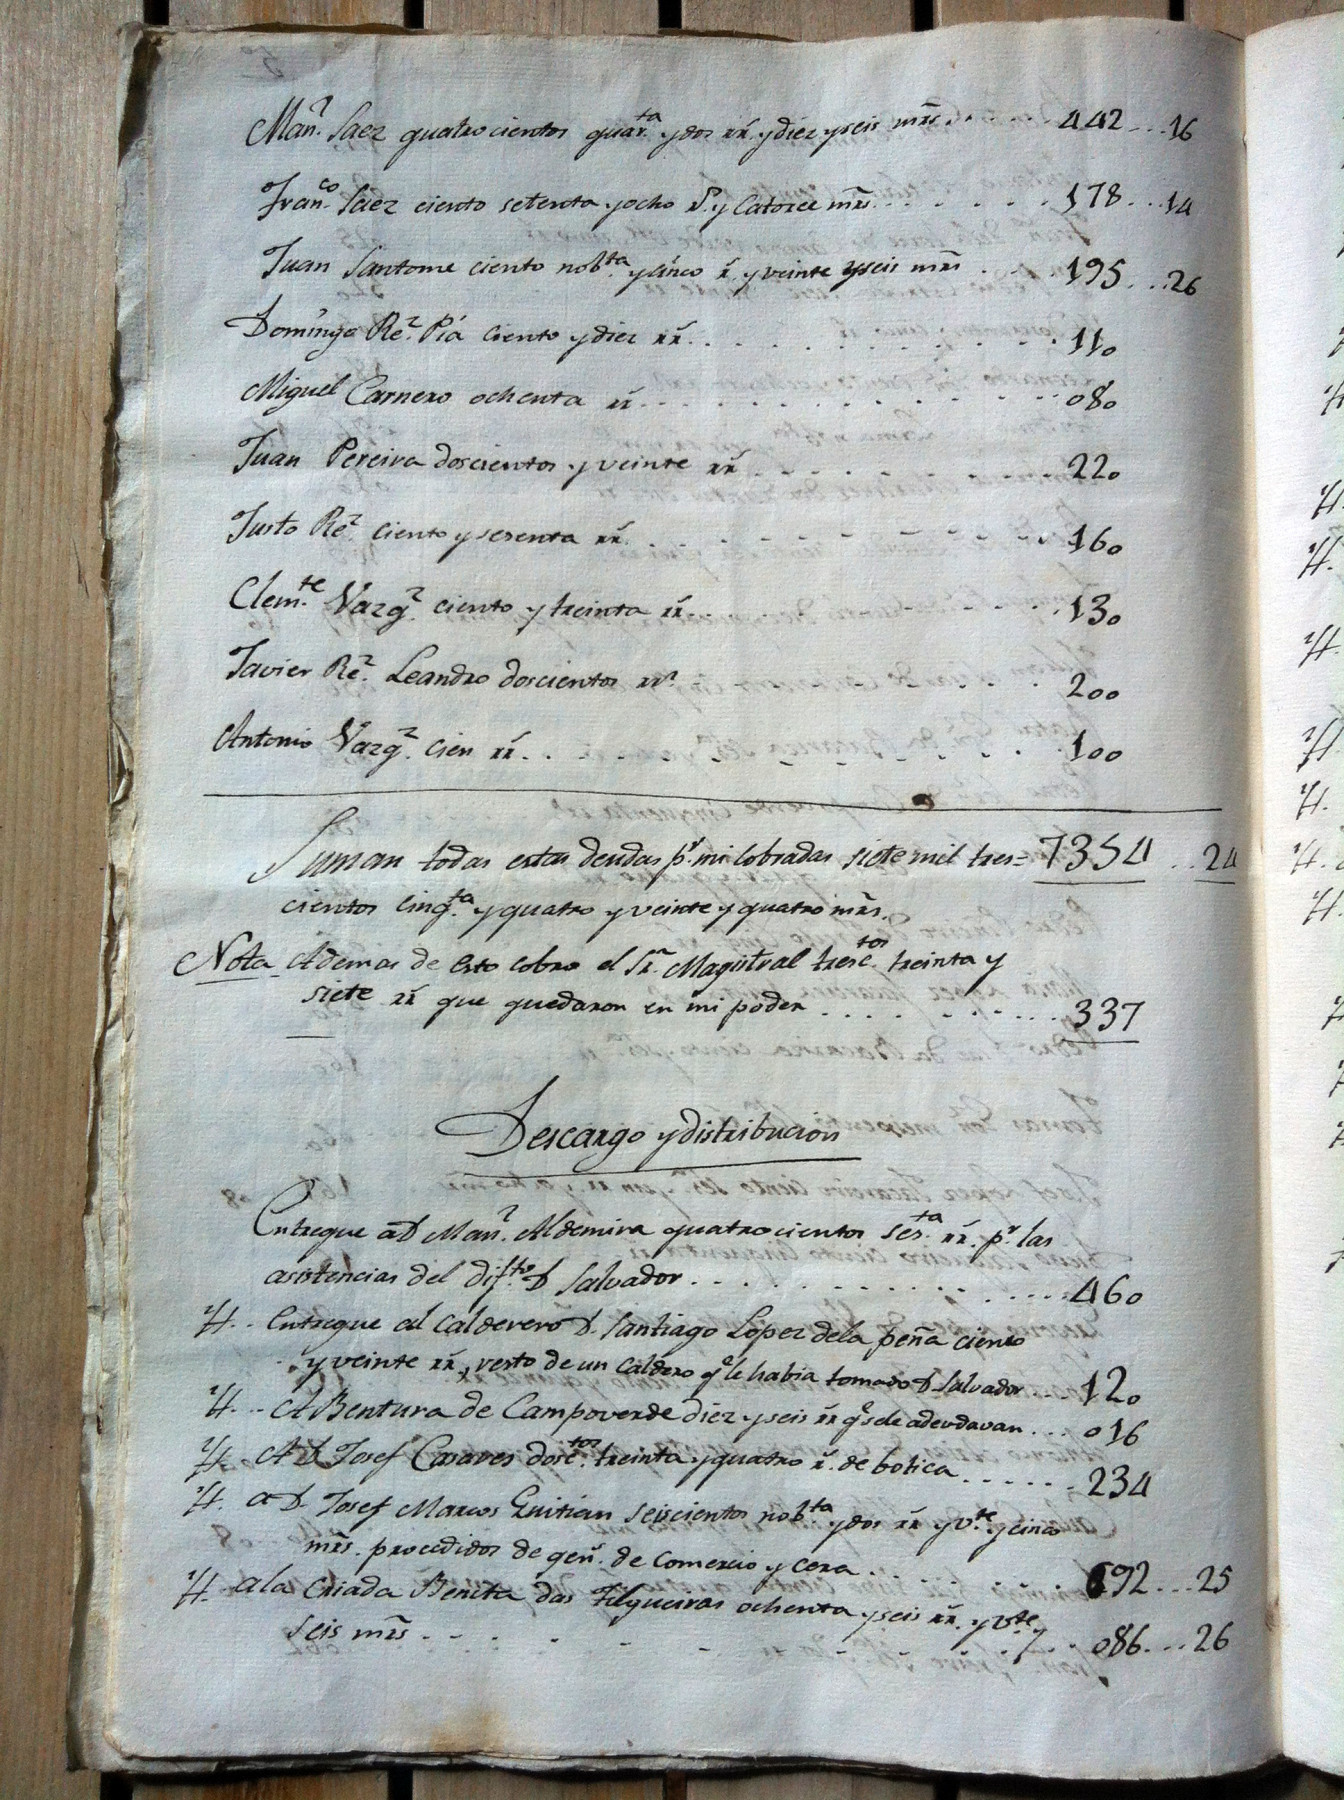 Man.l Saez quatrocientos quar.ta y dos rr.s y diez y seis mrs. . . . . 442 . . . 16
Fran.co Saez ciento setenta y ocho r.s y Catorce mrs. . . . . . . 178 . . . 14
Juan Santome ciento nob.ta y cinco r.s y veinte y seis mrs . . . . 195 . . . 26
Domingo Re.z Pía ciento y diez rr.s . . . . . . . . . 110
Miguel Carnero ochenta rr.s . . . . . . . . . 080
Juan Pereira doscientos y veinte rr.s . . . . . . . . 220
Justo Re.z ciento y sesenta rr.s . . . . . . . . . 160
Clem.te Vazq.z ciento y treinta rr.s . . . . . . . . . 130
Javier Re.z Leandro doscientos rr.s . . . . . . . . 200
Antonio Vazq.z cien rr.s . . . . . . . . . 100
Suman todas estas deudas p.r mi cobradas siete mil tres= 7354 . . 24
cientos cinq.ta y quatro y veinte y quatro mrs.
Nota Ademas de esto cobro el S.r Magistral tresc.tos treinta y
siete rr.s que quedaron en mi poder . . . . . . . . . 337
Descargo y distribucion
Entregue a D Man.l Aldemira quatrocientos ses.ta rr.s p.r las
asistencias del dif.to D Salvador . . . . . . . . . . . 460
Yt. . Entregue al calderero D. Santiago Lopez dela peña ciento
y veinte rr.s, resto de un caldero q.e le habia tomado D Salvador . . . 120
Yt. . . A Bentura de Campoverde diez y seis rr.s q.e sele adeudavan . . . 016
Yt. A D Josef Casares dosc.tos treinta y quatro r.s de botica . . . . . . 234
Yt. a D. Josef Marcos Guitian seiscientos nob.ta y dos rr.s y v.te y cinco
mrs. procedidos de gen.s de comercio y cera . . . . . . . . . 692 . . . 25
Yt. . a la Criada Benita das Filgueiras ochenta y seis rr.s y v.te y
seis mrs . . . . . . . . . . . . 086 . . . 26